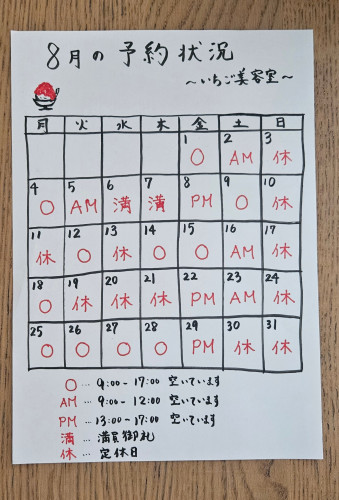 8月の予約状況
〜いちご美容室〜
月 火 水 木 金 土 日
1 2 3
○ AM 休
4 5 6 7 8 9 10
○ AM 満 満 PM ○ 休
11 12 13 14 15 16 17
休 ○ 休 ○ ○ AM 休
18 19 20 21 22 23 24
○ 休 休 休 PM AM 休
25 26 27 28 29 30 31
○ ○ ○ ○ PM 休 休
○ … 9:00-17:00 空いています
AM … 9:00-12:00 空いています
PM … 13:00-17:00 空いています
満 … 満員御礼
休 … 定休日